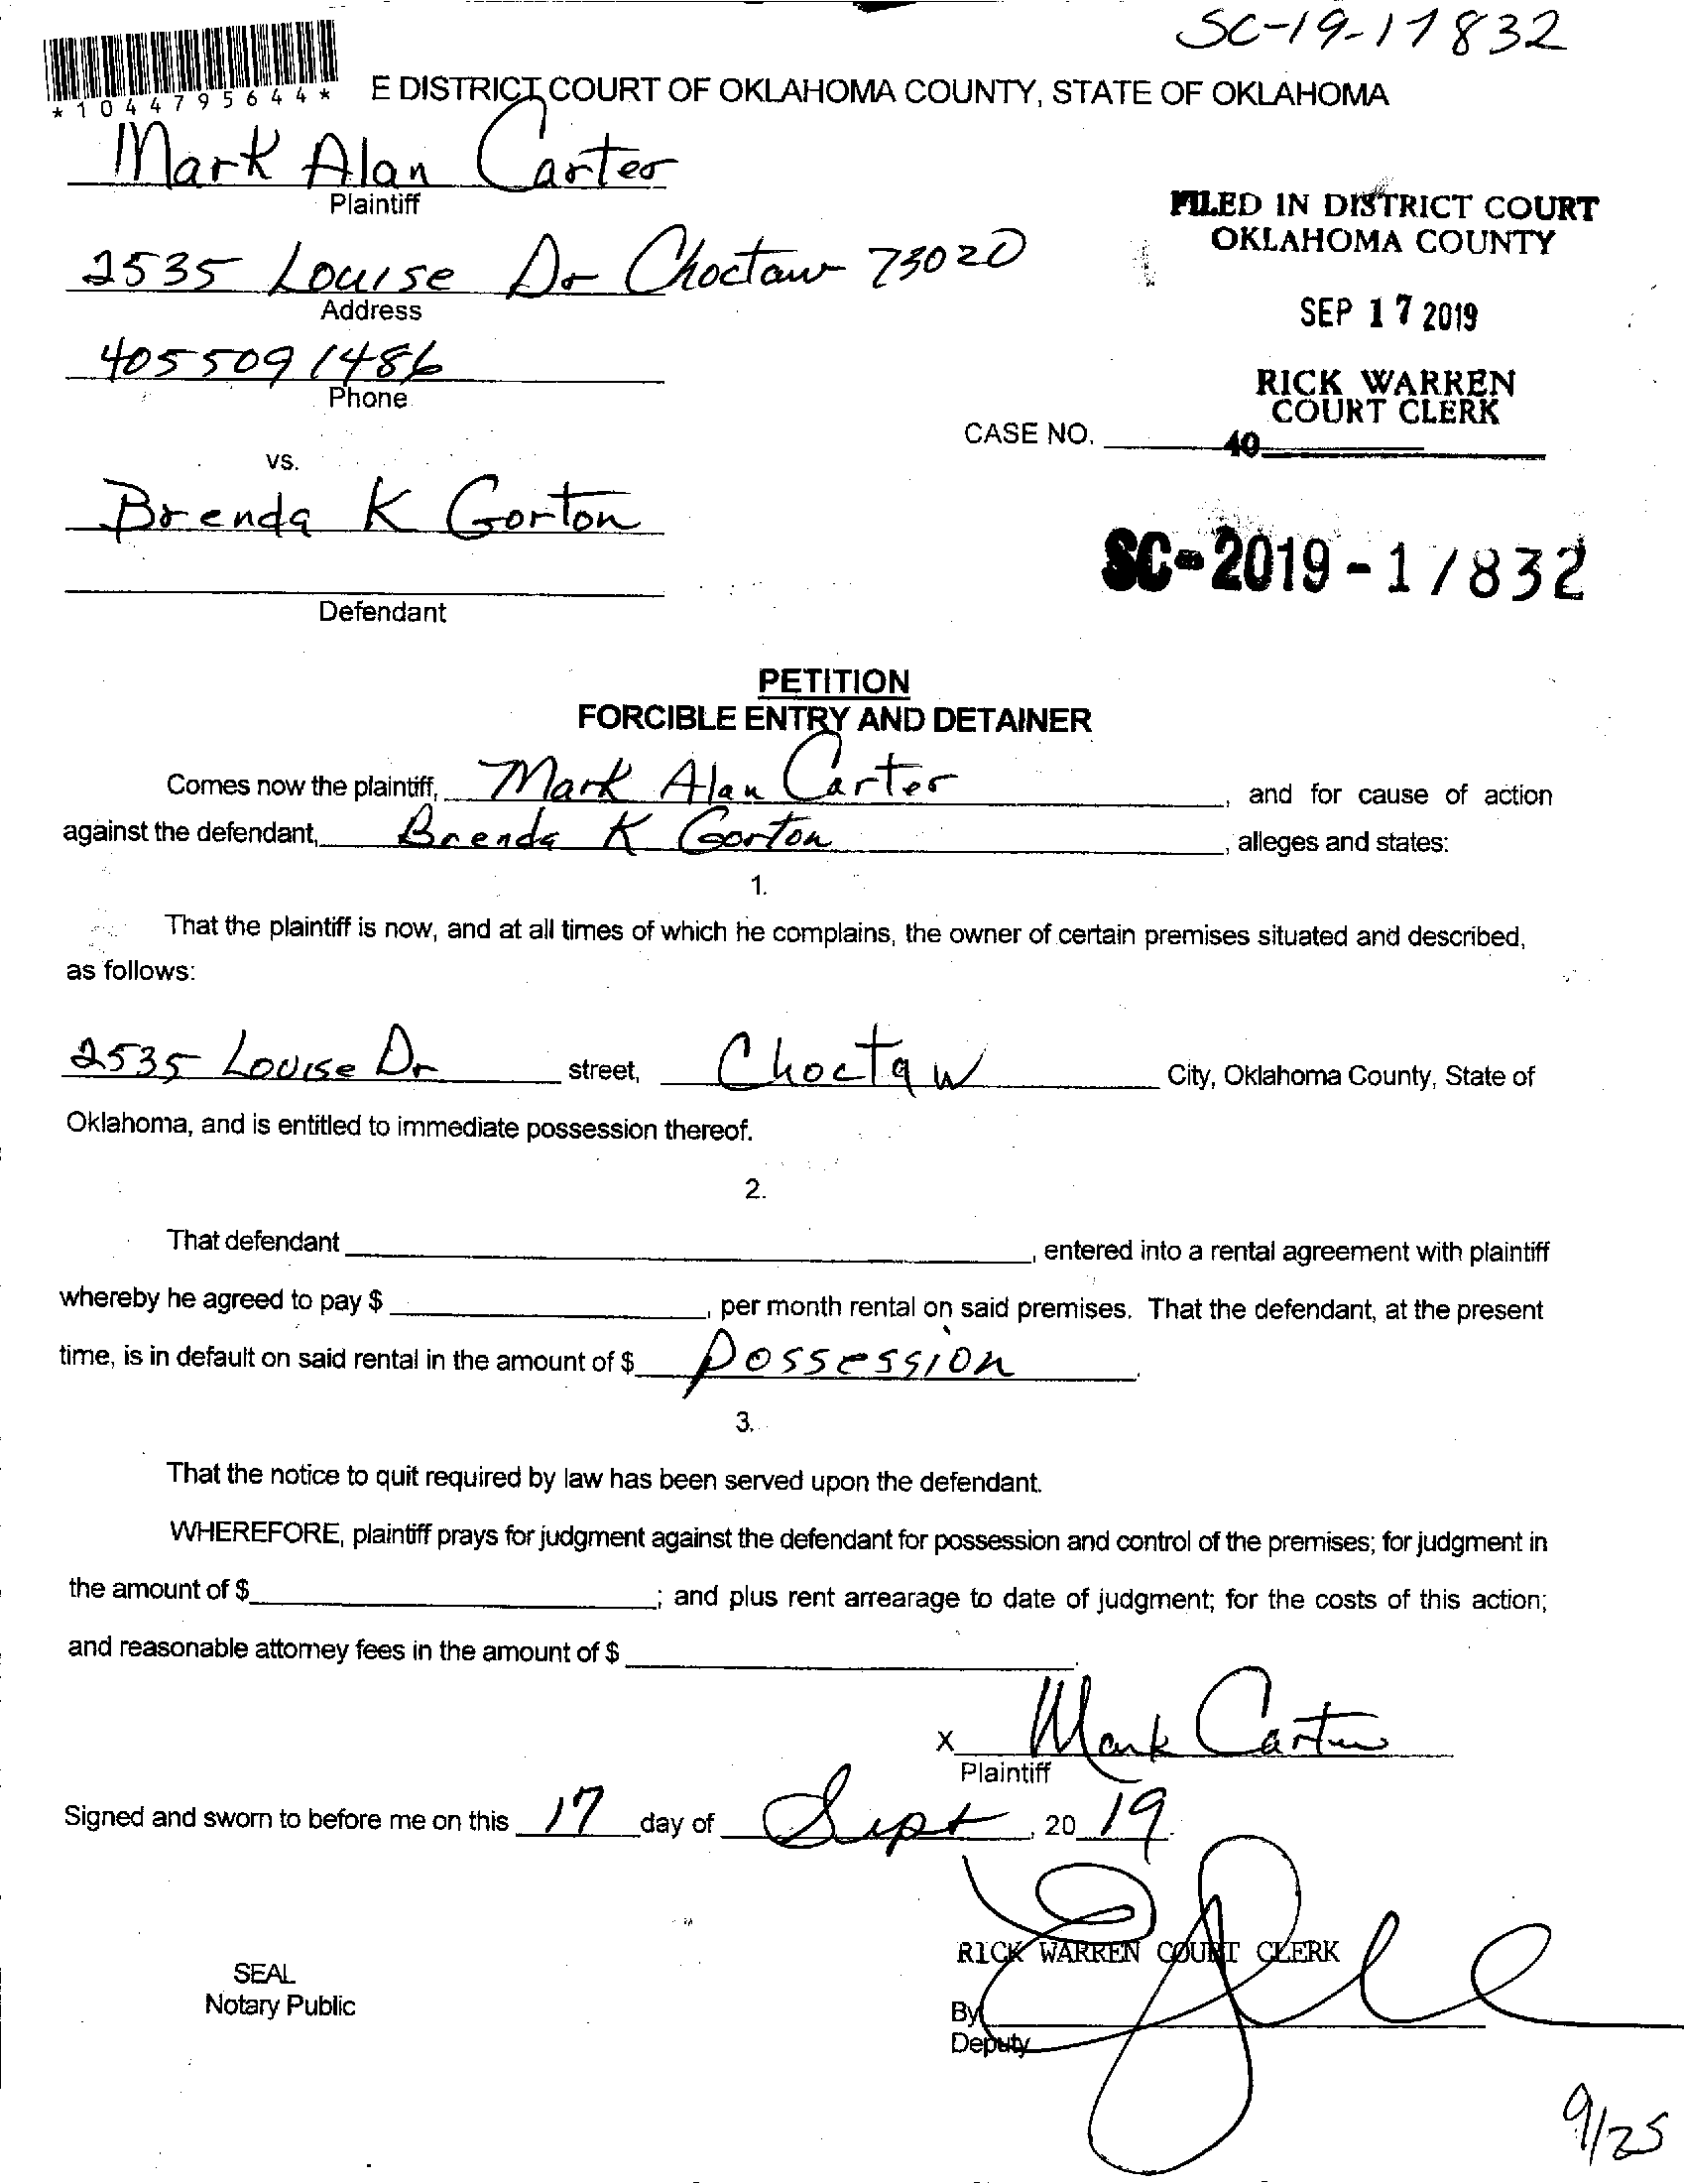 SC-19-17832
*1044795644*
E DISTRICT COURT OF OKLAHOMA COUNTY, STATE OF OKLAHOMA
Mark Alan Carter
Plaintiff
2535 Louise Dr Choctaw 73020
Address
405 509 1486
Phone
FILED IN DISTRICT COURT
OKLAHOMA COUNTY
SEP 17 2019
RICK WARREN
COURT CLERK
CASE NO.
40
vs.
Brenda K Gorton
Defendant
SC-2019-17832
PETITION
FORCIBLE ENTRY AND DETAINER
Comes now the plaintiff, Mark Alan Carter, and for cause of action
against the defendant, Brenda K Gorton, alleges and states:
1.
That the plaintiff is now, and at all times of which he complains, the owner of certain premises situated and described,
as follows:
2535 Louise Dr street, Choctaw City, Oklahoma County, State of
Oklahoma, and is entitled to immediate possession thereof.
2.
That defendant , entered into a rental agreement with plaintiff
whereby he agreed to pay $ , per month rental on said premises. That the defendant, at the present
time, is in default on said rental in the amount of $ Possession.
3.
That the notice to quit required by law has been served upon the defendant.
WHEREFORE, plaintiff prays for judgment against the defendant for possession and control of the premises; for judgment in
the amount of $ ; and plus rent arrearage to date of judgment; for the costs of this action;
and reasonable attorney fees in the amount of $ .
x Mark Carter
Plaintiff
Signed and sworn to before me on this 17 day of Sept, 20 19.
RICK WARREN COURT CLERK
SEAL
Notary Public
By
Deputy
9/25